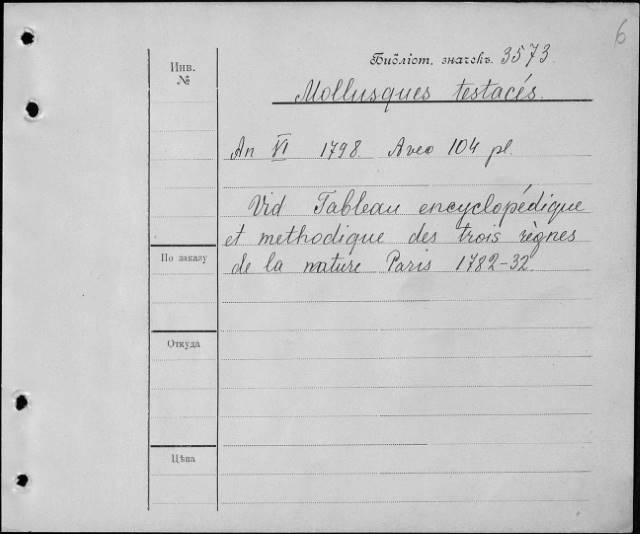 6
Библіот. значекъ. 3573.
Инв.
№
Mollusques testacés.
An VI 1798. Avec 104 pl.
Vid Tableau encyclopédique
et methodique des trois règnes
По заказу
de la nature Paris 1782-32.
Откуда
Цѣна